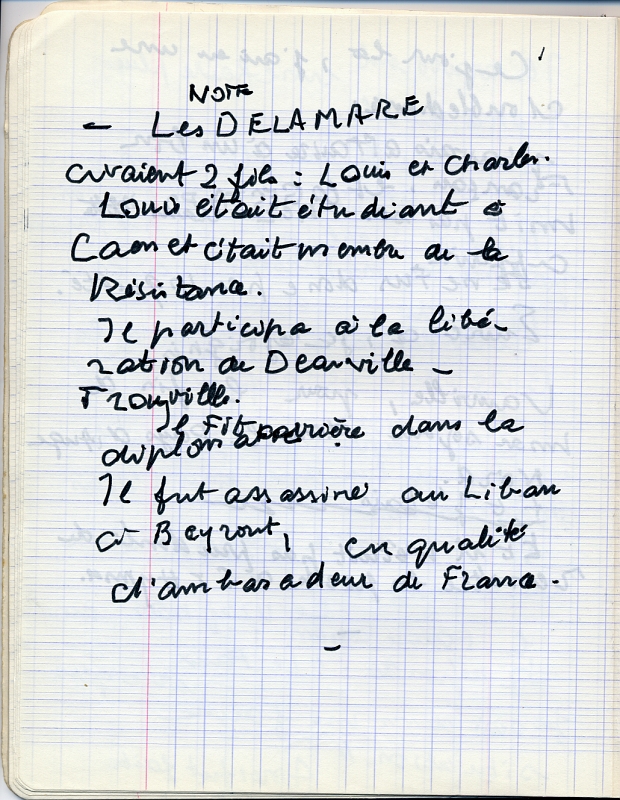 NOTE
- Les DELAMARE
avaient 2 fils : Louis et Charles.
Louis était étudiant à
Caen et était membre de la
Résistance.
Il participa à la libé-
ration de Deauville -
Trouville.
Il fit carrière dans la
diplomatie.
Il fut assassiné au Liban
à Beyrout, en qualité
d'ambassadeur de France.
-